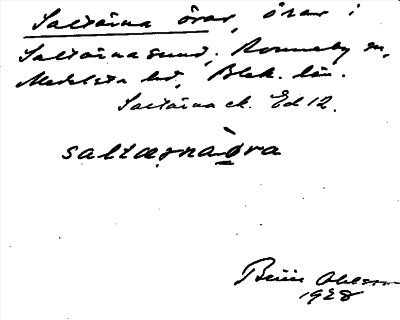 Saltärna örar, öhar i
Saltärnasund, Ronneby sn,
Medelsta hd, Blek. län.
Saltärna ek. Ed 12.
saltærnaòra
Ohlsson
1928